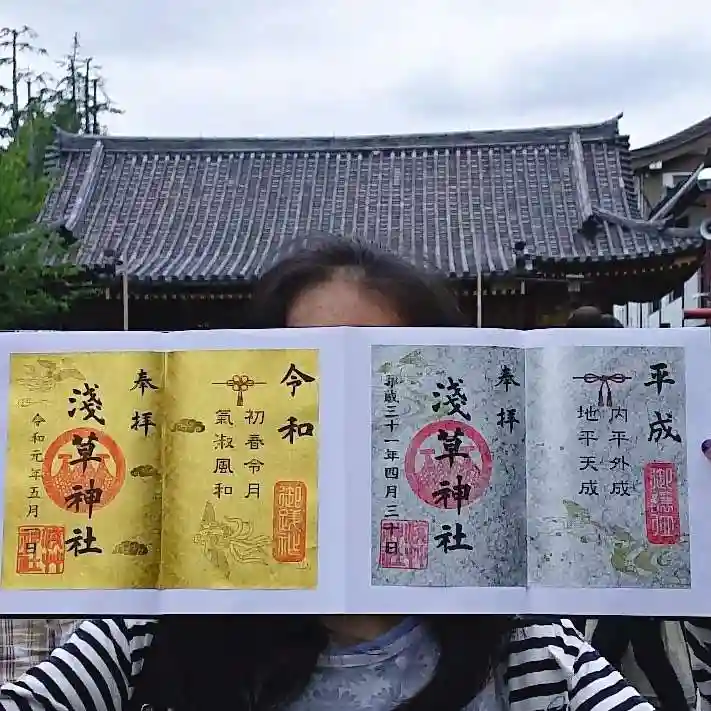 平成
内平外成
地平天成
奉拝
淺草神社
平成三十一年四月三十日
令和
初春令月
氣淑風和
奉拝
淺草神社
令和元年五月 日